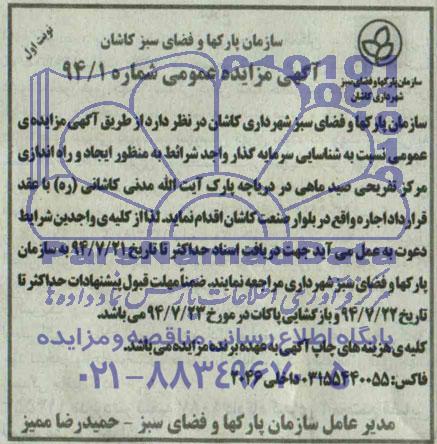 نوبت اول
سازمان پارکها و فضای سبز کاشان
آگهی مزایده عمومی شماره ۹۴/۱
سازمان پارکها و فضای سبز
شهرداری کاشان
سازمان پارکها و فضای سبز شهرداری کاشان در نظر دارد از طریق آگهی مزایده‌ی
عمومی نسبت به شناسایی سرمایه گذار واجد شرائط به منظور ایجاد و راه اندازی
مرکز تفریحی صید ماهی در دریاچه پارک آیت الله مدنی کاشانی (ره) با عقد
قرارداد اجاره واقع در بلوار صنعت کاشان اقدام نماید. لذا از کلیه‌ی واجدین شرایط
دعوت به عمل می آید جهت دریافت اسناد حداکثر تا تاریخ ۹۴/۷/۲۱ به سازمان
پارکها و فضای سبز شهرداری مراجعه نمایند. ضمناً مهلت قبول پیشنهادات حداکثر تا
تاریخ ۹۴/۷/۲۲ و بازگشایی پاکات در مورخ ۹۴/۷/۲۳ می باشد.
کلیه‌ی هزینه های چاپ آگهی به عهده برنده مزایده می باشد.
فاکس: ۰۳۱۵۵۴۴۰۰۵۵ داخلی ۲۰۴۶
مدیر عامل سازمان پارکها و فضای سبز - حمیدرضا ممیز
ParsNamadData
مرکز فرآوری اطلاعات پارس نماد داده ها
پایگاه اطلاع رسانی مناقصه و مزایده
۰۲۱-۸۸۳۴۹۶۷۰-۵